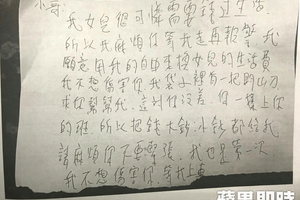 小哥
我女兒很可憐需要錢过生活
所以我麻煩你等我走再報警 我
願意用我的自由來換女兒的生活費
我不想傷害你 我袋子裡有一把開山刀
求你幫幫我 意到你沒差 你一樣上你
的班 所以把錢大鈔 小鈔都給我
請麻煩你不要緊張 我也是第一次
我不想傷害你 等我上車
蘋果即時